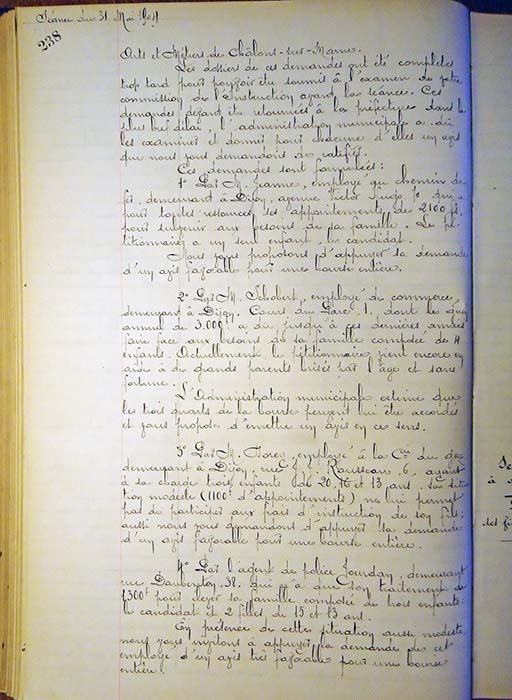 Séance du 31 Mai 1904
238
Arts et Métiers de Châlons-sur-Marne.
Les dossiers de ces demandes ont été complétés
trop tard pour pouvoir être soumis à l'examen de votre
commission de l'Instruction avant la séance. Ces
demandes devant être retournées à la préfecture dans le
plus bref délai, l'administration municipale a dû
les examiner et donner pour chacune d'elles un avis
que nous vous demandons de ratifier.
Ces demandes sont formulées:
1° Par M. Jeanne, employé au chemin de
fer, demeurant à Dijon, avenue Victor Hugo qui a
pour toutes ressources ses appointements de 2100 f.
pour subvenir aux besoins de sa famille. Le pé-
titionnaire a un seul enfant, le candidat.
Nous vous proposons d'appuyer sa demande
d'un avis favorable pour une bourse entière.
2° Par M. Schobert, employé de commerce,
demeurant à Dijon, Cours du Parc 1, dont le gain
annuel de 3.000f a dû jusqu'à ces dernières années
faire face aux besoins de sa famille composée de 4
enfants. Actuellement le pétitionnaire vient encore en
aide à de grands parents brisés par l'âge et sans
fortune.
L'Administration municipale estime que
les trois quarts de la bourse peuvent lui être accordés
et vous propose d'émettre un avis en ce sens.
3° Par M. employé à la Cie du gaz
demeurant à Dijon, rue J. J. Rousseau, 6, ayant
à sa charge trois enfants de 20, 16 et 13 ans. Sa situa
tion modeste (1100f d'appointements) ne lui permet
pas de participer aux frais d'instruction de son fils;
aussi nous vous demandons d'appuyer sa demande
d'un avis favorable pour une bourse entière.
4° Par l'agent de police Jourdan, demeurant
rue Daubenton, 38, qui n'a que son traitement de
1300f pour élever sa famille composée de trois enfants:
le candidat et 2 filles de 15 et 13 ans.
En présence de cette situation aussi modeste
nous vous invitons à appuyer la demande de cet
employé d'un avis très favorable pour une bourse
entière.